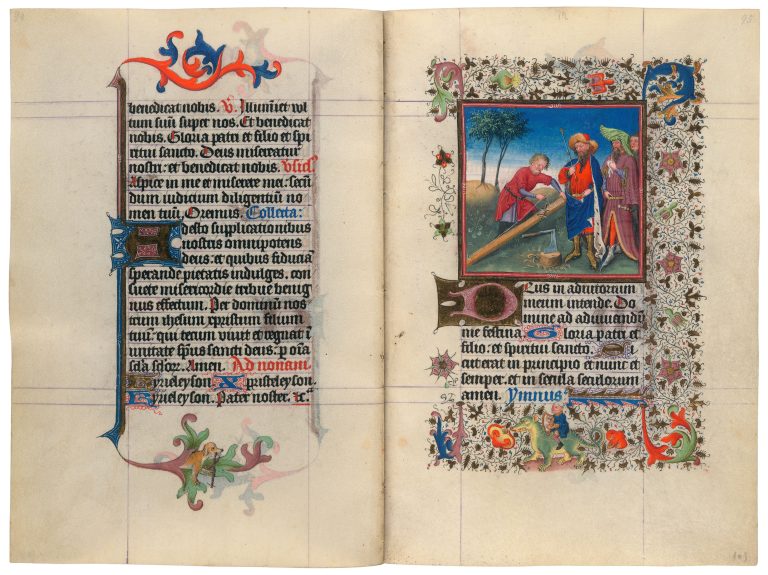 benedicat nobis. V. Illumīet vul
tum suū super nos. Et benedicat
nobis. Gloria patri et filio et spi
ritui sancto. Deus misereatur
nostri: et benedicat nobis. Vsicl9
Aspice in me et miserere mei: secū
dium iudicium diligentiū no
men tuū, Oremus. Collecta:
Adesto supplicationibus
nostris omnipotens
deus: et quibus fiduciā
sperande pietatis indulges. con
suete misericordie tribue benig
nus effectum. Per dominū nos
trum ihesum xpristum filium
tuū: qui tecum viuit et regnat ī
unitate spūs sancti deus: p oīa
scła scłor. Amen. Ad nonam.
Kyrieleyson. Xpristeleyson.
Kyrieleyson. Pater noster. &c.
95
Deus in adiutorium
meum intende. Do
mine ad adiuuandū
me festina Gloria patri et
filio: et spiritui sancto. Si
cut erat in principio et nunc et
semper. et in secula seculorum
amen. Ymnus
92